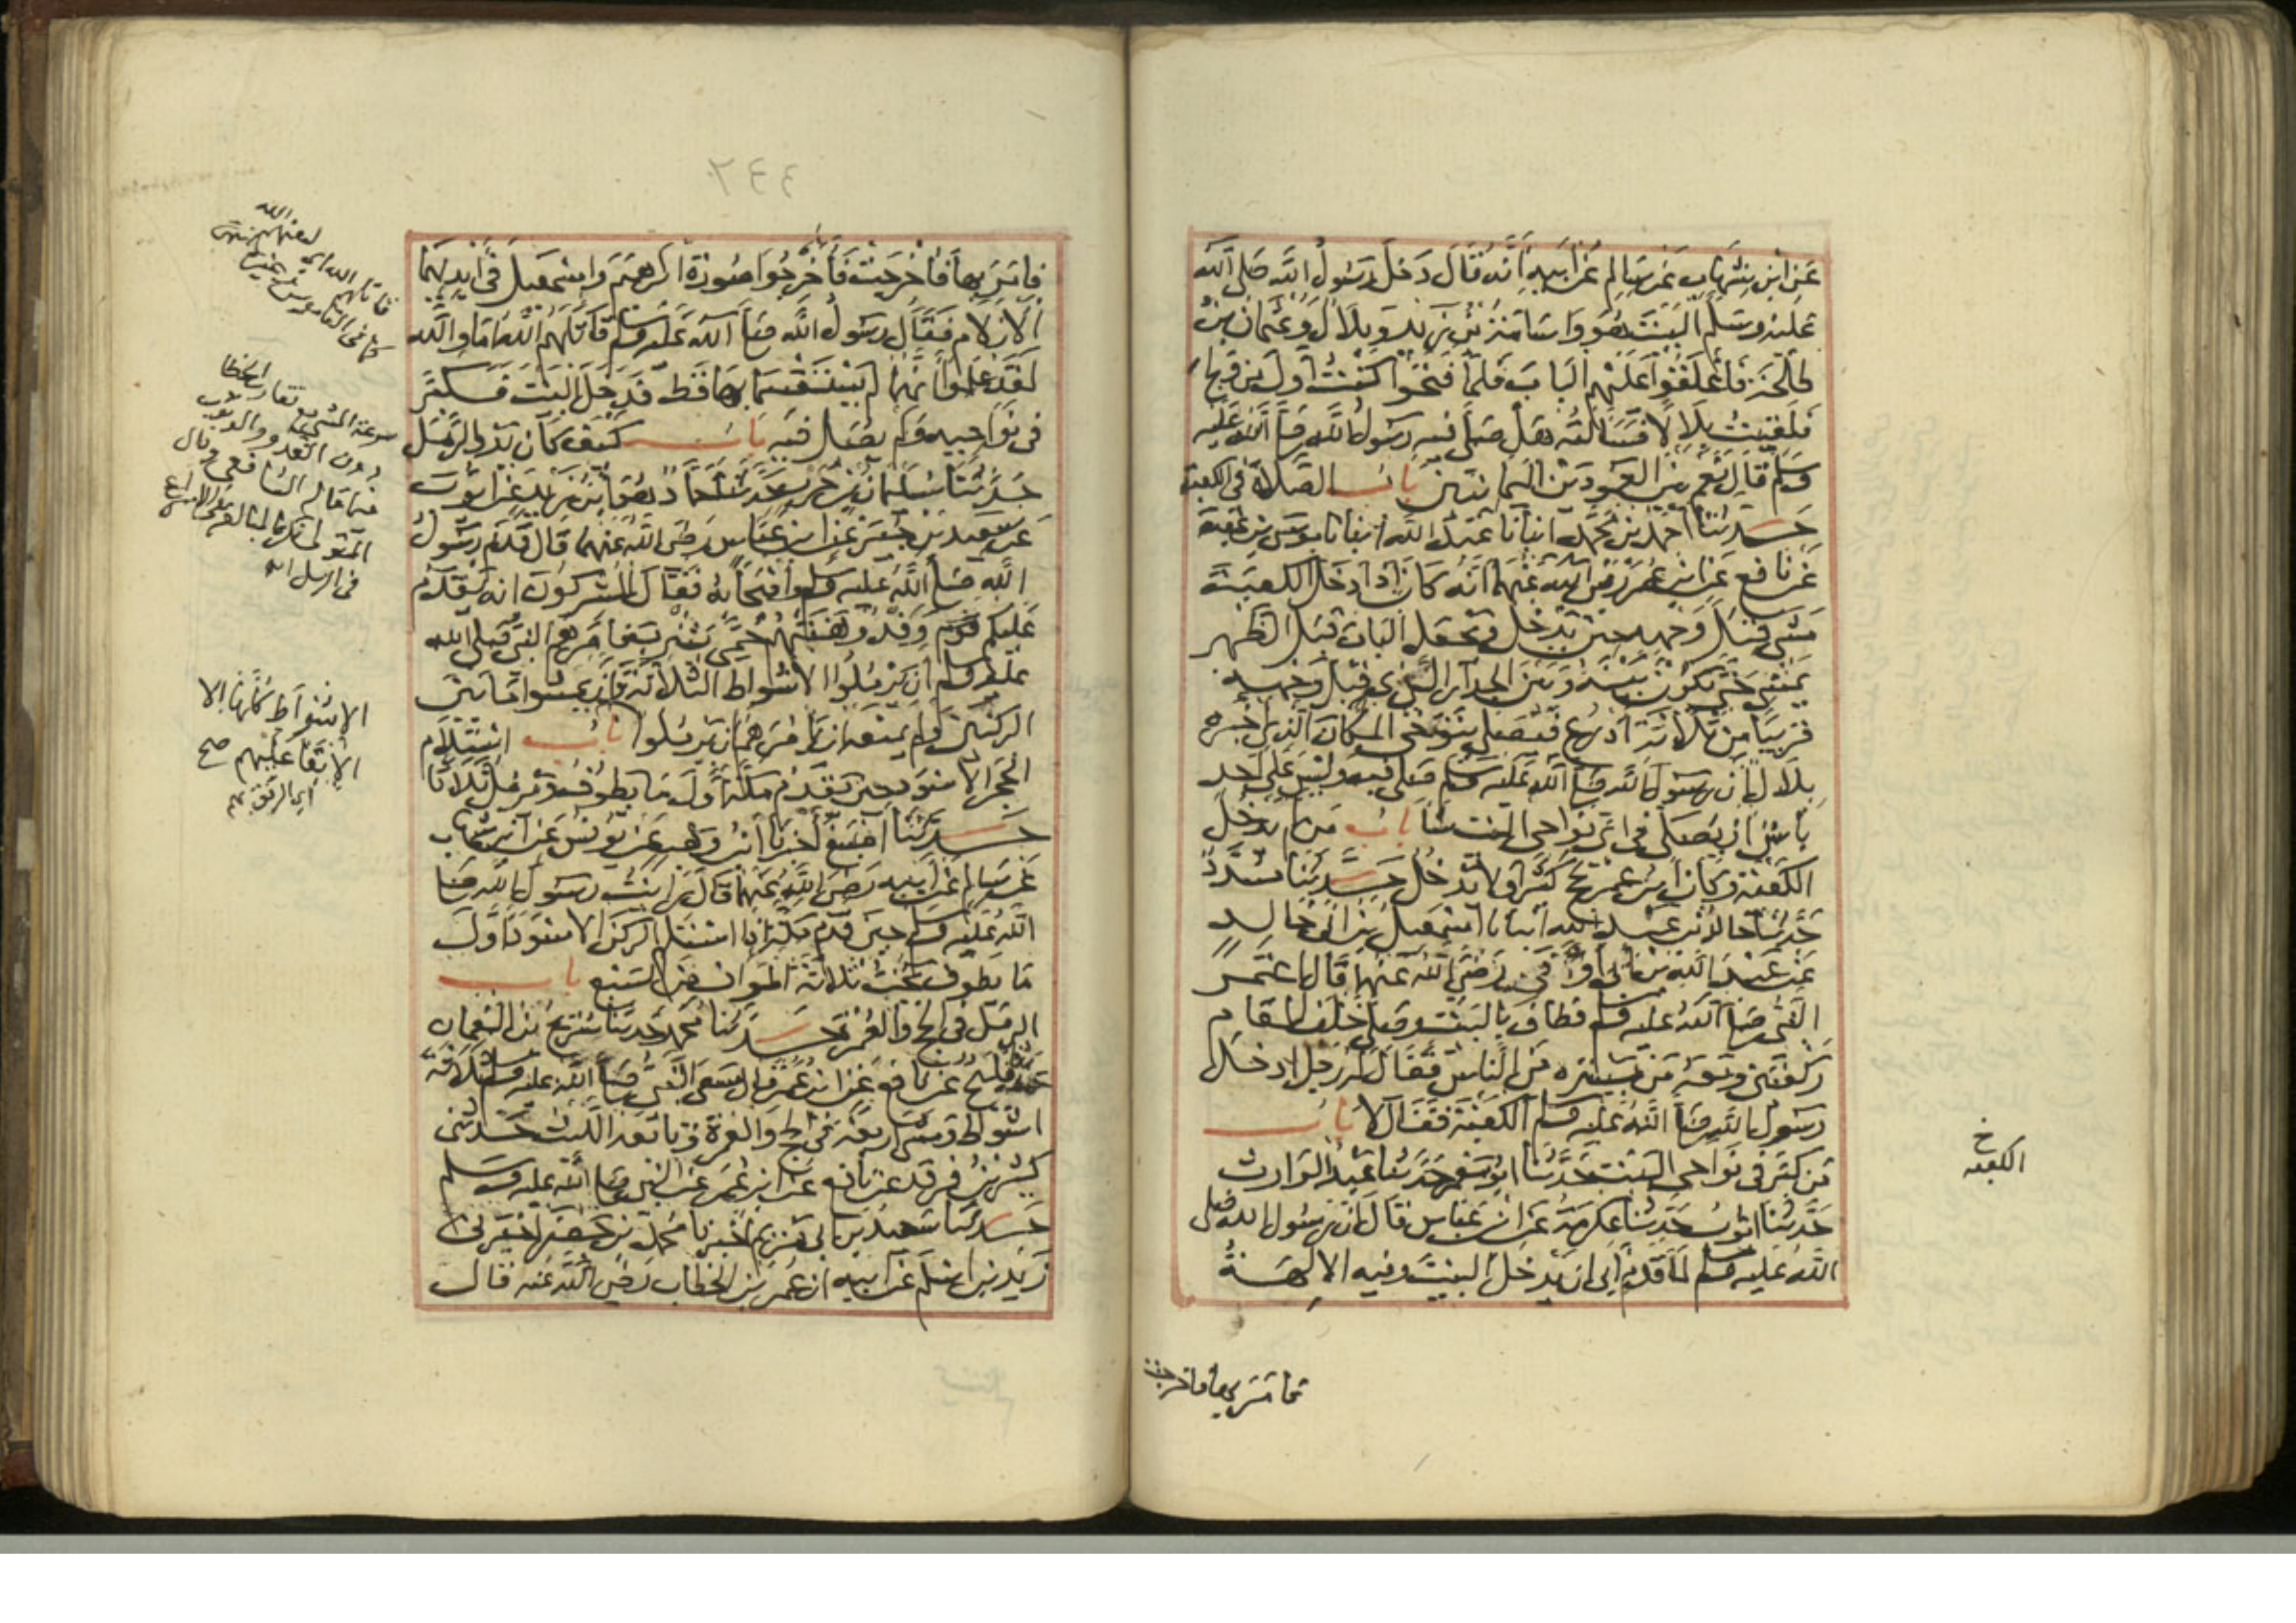 عن ابن شهاب عن سالم عن ابيه انه قال دخل رسول الله صلى الله
عليه وسلم البيت هو واسامة بن زيد وبلال وعثمان بن
طلحة فاغلقوا عليهم الباب فلما فتحوا كنت اول من ولج
فلقيت بلالا فسالته هل صلى فيه رسول الله صلى الله عليه
وسلم قال نعم بين العمودين اليمانيين باب الصلاة في الكعبة
حدثنا احمد بن محمد انبانا عبد الله انبانا موسى بن عقبة
عن نافع عن ابن عمر رضي الله عنهما انه كان اذا دخل الكعبة
مشى قبل وجهه حين يدخل ويجعل الباب قبل الظهر
يمشي حتى يكون بينه وبين الجدار الذي قبل وجهه
قريبا من ثلاثة اذرع فيصلي يتوخى المكان الذي اخبره
بلال ان رسول الله صلى الله عليه وسلم صلى فيه وليس على احد
باس ان يصلي في اي نواحي البيت شا باب من لم يدخل
الكعبة وكان ابن عمر يحج كثيرا ولا يدخل حدثنا مسدد
حدثنا خالد بن عبد الله انبانا اسمعيل بن ابي خالد
عن عبد الله بن ابي اوفى رضي الله عنهما قال اعتمر
النبي صلى الله عليه وسلم فطاف بالبيت وصلى خلف المقام
ركعتين ومعه من يستره من الناس فقال له رجل ادخل
رسول الله صلى الله عليه وسلم الكعبة فقال لا باب
من كبر في نواحي البيت حدثنا ابو معمر حدثنا عبد الوارث
حدثنا ايوب حدثنا عكرمة عن ابن عباس قال ان رسول الله صلى
الله عليه وسلم لما قدم ابى ان يدخل البيت وفيه الالهة
خ
الكعبه
فامر بها فاخرجت
٢٤٤
فامر بها فاخرجت فاخرجوا صورة ابرهيم واسمعيل في ايديهما
الازلام فقال رسول الله صلى الله عليه وسلم قاتلهم الله اما والله
لقد علموا انهما لم يستقسما بها قط فدخل البيت فكبر
في نواحيه ولم يصل فيه باب كيف كان بدو الرمل
حدثنا سليمان بن حرب حدثنا حماد هو ابن زيد عن ايوب
عن سعيد بن جبير عن ابن عباس رضي الله عنهما قال قدم رسول
الله صلى الله عليه وسلم واصحابه فقال المشركون انه يقدم
عليكم قوم وقد وهنتهم حمى يثرب فامرهم النبي صلى الله
عليه وسلم ان يرملوا الاشواط الثلاثة وان يمشوا ما بين
الركنين ولم يمنعه ان يامرهم ان يرملوا باب استلام
الحجر الاسود حين يقدم مكة اول ما يطوف ويرمل ثلاثا
حدثنا اصبغ اخبرنا ابن وهب عن يونس عن ابن شهاب
عن سالم عن ابيه رضي الله عنهما قال رايت رسول الله صلى
الله عليه وسلم حين قدم مكة اذا استلم الركن الاسود اول
ما يطوف يخب ثلاثة اطواف من السبع باب
الرمل في الحج والعمرة حدثنا محمد حدثنا سريج بن النعمان
حدثنا فليح عن نافع عن ابن عمر قال سعى النبي صلى الله عليه وسلم ثلاثة
اشواط ومشى اربعة في الحج والعمرة تابعه الليث حدثني
كثير بن فرقد عن نافع عن ابن عمر عن النبي صلى الله عليه وسلم
حدثنا سعيد بن ابي مريم اخبرنا محمد بن جعفر اخبرني
زيد بن اسلم عن ابيه ان عمر بن الخطاب رضي الله عنه قال
قاتلهم الله اي
لعنهم الله
سرعة المشي مع تقارب الخطا
دون العدو والوثوب
فيما قاله الشافعي وقال
المتولي
الاشواط كلها الا
الابقا عليهم صح
اي الرفق بهم